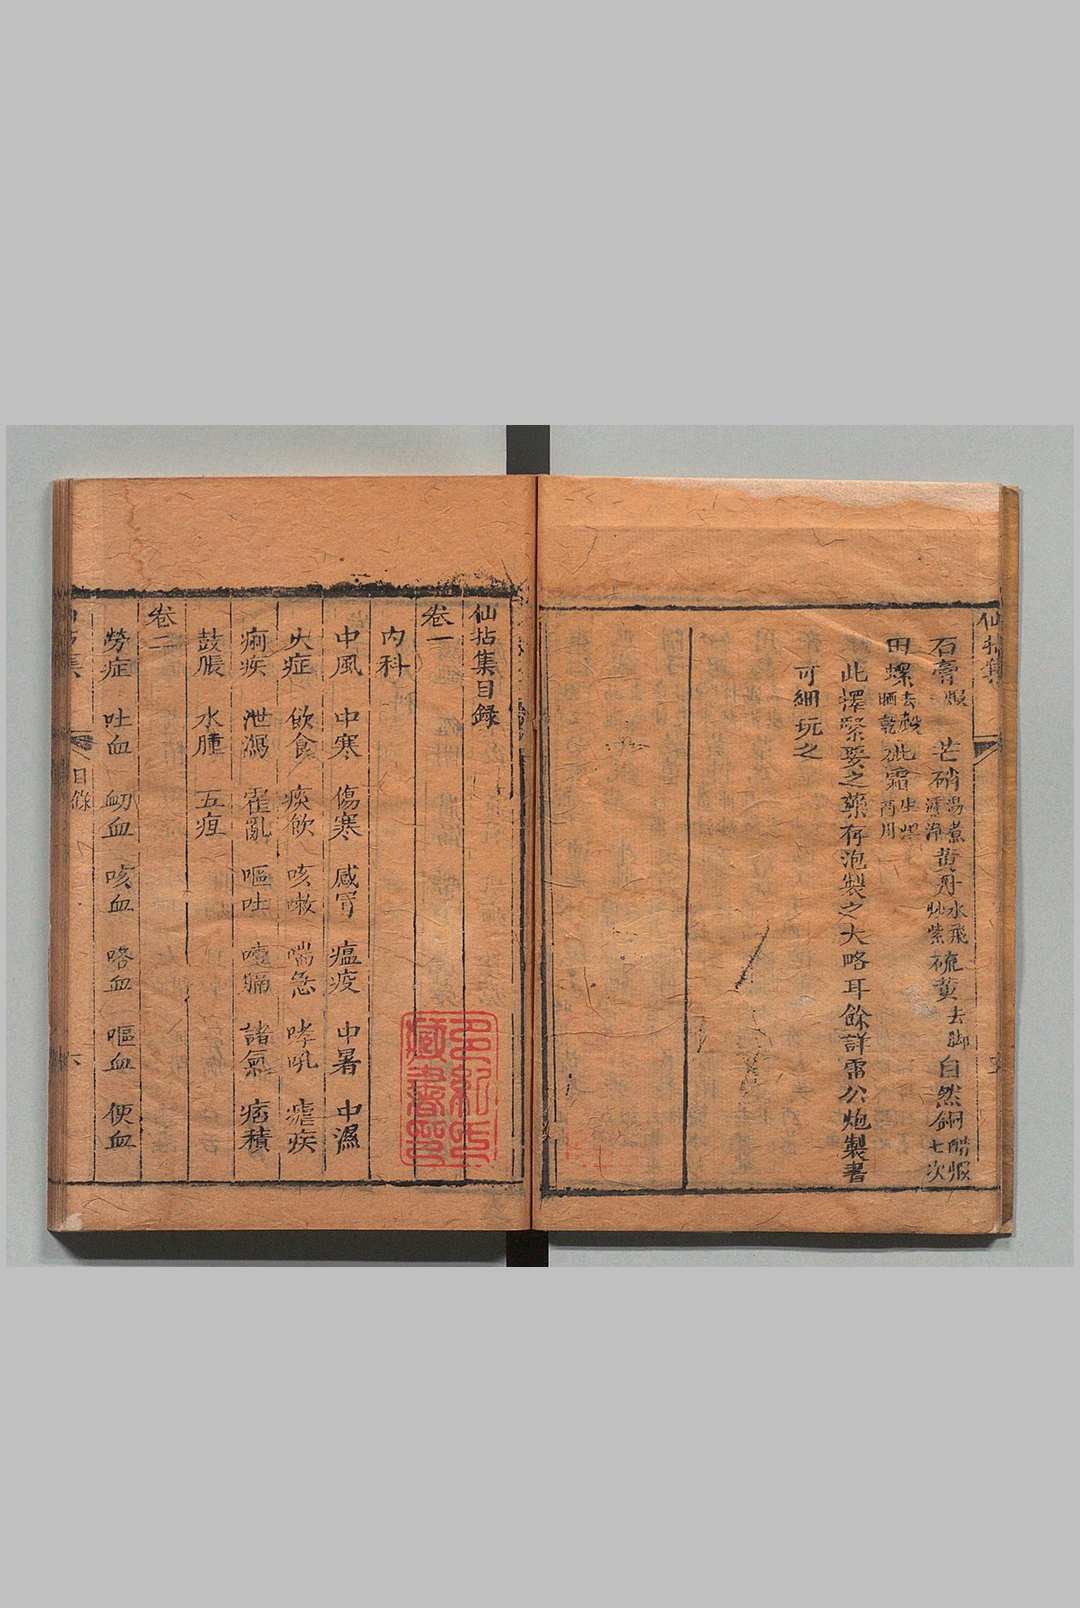 石膏煅 芒硝湯煮濾淨 黃丹水飛炒紫 硫黃去脚 自然銅醋煅七次
田螺去殼晒乾 砒霜生煅
此擇緊要之藥存泡製之大略耳餘詳雷公炮製書
可細玩之
仙拈集目録
卷一
內科
中風 中寒 傷寒 感冒 瘟疫 中暑 中濕
火症 飲食 痰飲 咳嗽 喘急 哮吼 瘧疾
痢疾 泄瀉 霍亂 嘔吐 噎膈 諸氣 痞積
鼓脹 水腫 五疸
卷二
勞症 吐血 衂血 咳血 咯血 嘔血 便血
目錄 六